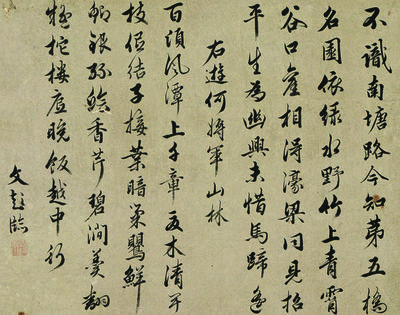 不識南塘路今知第五橋
名園依綠水野竹上青霄
谷口舊相得濠梁同見招
平生為幽興未惜馬蹄遙
右遊何將軍山林
百頃風潭上千章夏木清卑
枝低結子接葉暗巢鶯鮮
鯽銀絲鱠香芹碧澗羹翻
疑柁樓底晚飯越中行
文彭臨